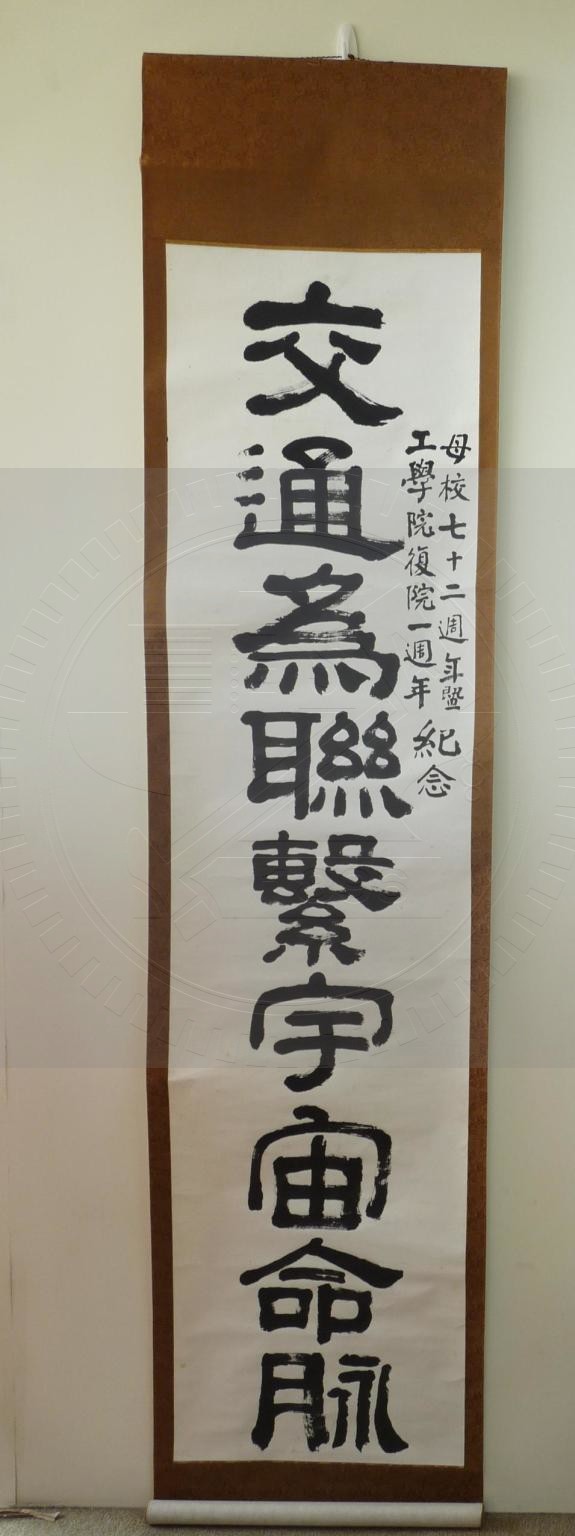 母校七十二週年暨
工學院復院一週年
紀念
交通為聯繫宇宙命脉